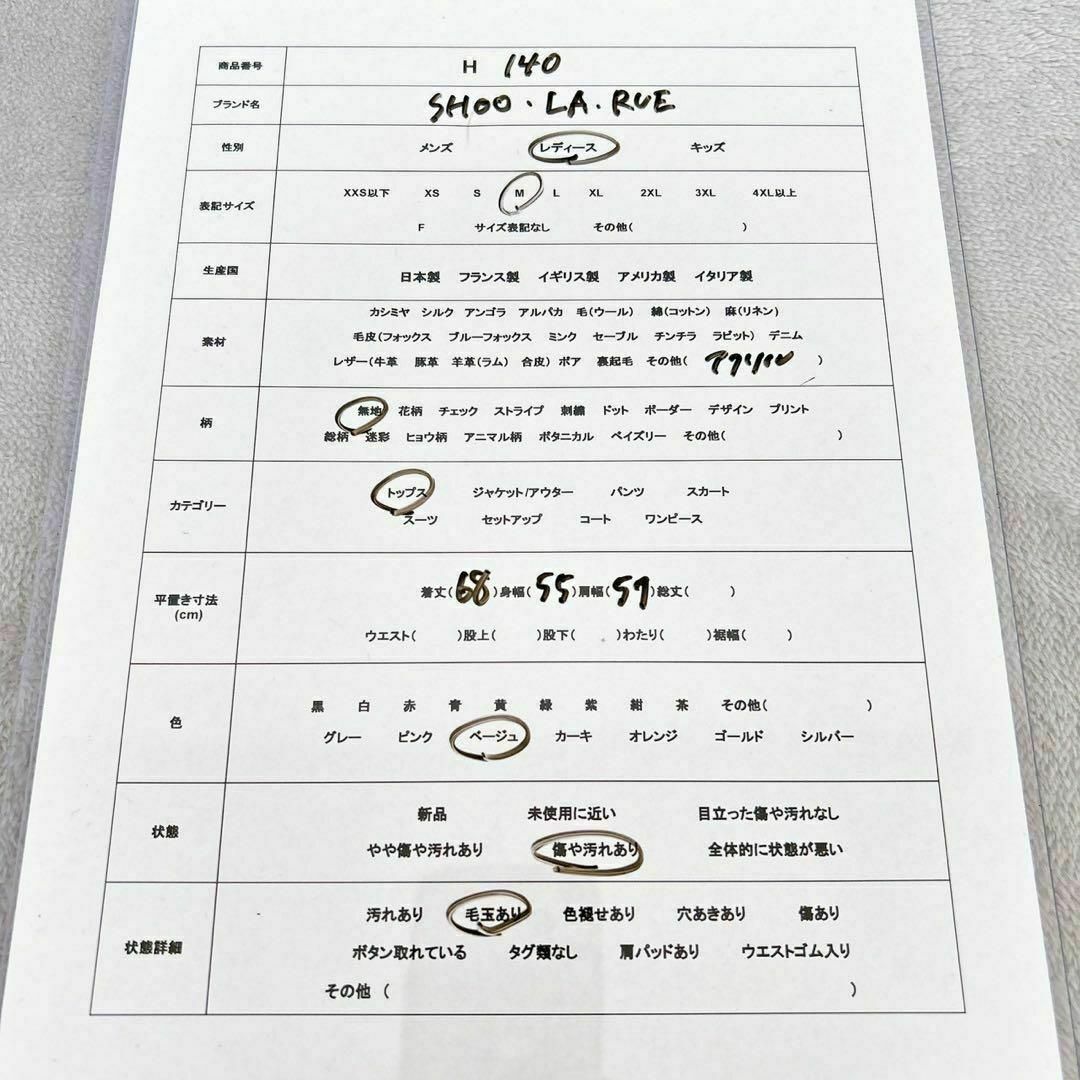 商品番号 H 140
ブランド名 SHOO・LA・RUE
性別 メンズ レディース キッズ
表記サイズ XXS以下 XS S M L XL 2XL 3XL 4XL以上
F サイズ表記なし その他( )
生産国 日本製 フランス製 イギリス製 アメリカ製 イタリア製
素材 カシミヤ シルク アンゴラ アルパカ 毛(ウール) 綿(コットン) 麻(リネン)
毛皮(フォックス ブルーフォックス ミンク セーブル チンチラ ラビット) デニム
レザー(牛革 豚革 羊革(ラム) 合皮) ボア 裏起毛 その他( アクリル )
柄 無地 花柄 チェック ストライプ 刺繍 ドット ボーダー デザイン プリント
総柄 迷彩 ヒョウ柄 アニマル柄 ボタニカル ペイズリー その他( )
カテゴリー トップス ジャケット/アウター パンツ スカート
スーツ セットアップ コート ワンピース
平置き寸法 (cm) 着丈(68)身幅(55)肩幅(57)総丈( )
ウエスト( )股上( )股下( )わたり( )裾幅( )
色 黒 白 赤 青 黄 緑 紫 紺 茶 その他( )
グレー ピンク ベージュ カーキ オレンジ ゴールド シルバー
状態 新品 未使用に近い 目立った傷や汚れなし
やや傷や汚れあり 傷や汚れあり 全体的に状態が悪い
状態詳細 汚れあり 毛玉あり 色褪せあり 穴あきあり 傷あり
ボタン取れている タグ類なし 肩パッドあり ウエストゴム入り
その他 ( )